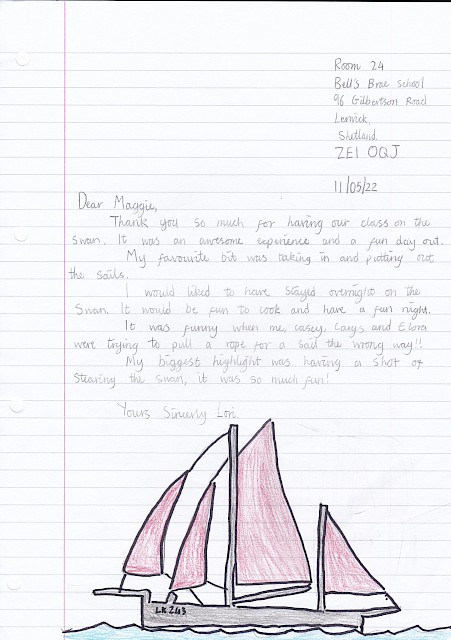 Room 24
Bell's Brae School
96 Gilbertson Road
Lerwick,
Shetland.
ZE1 0QJ
11/05/22
Dear Maggie,
Thank you so much for having our class on the
swan. It was an awesome experience and a fun day out.
My favourite bit was taking in and putting out
the sails.
I would liked to have stayed overnight on the
Swan. It would be fun to cook and have a fun night.
It was funny when me, casey, Carys and Elora
were trying to pull a rope for a sail the wrong way!!
My biggest highlight was having a shot of
stearing the swan, it was so much fun!
Yours Sincerly Lori.
LK 243